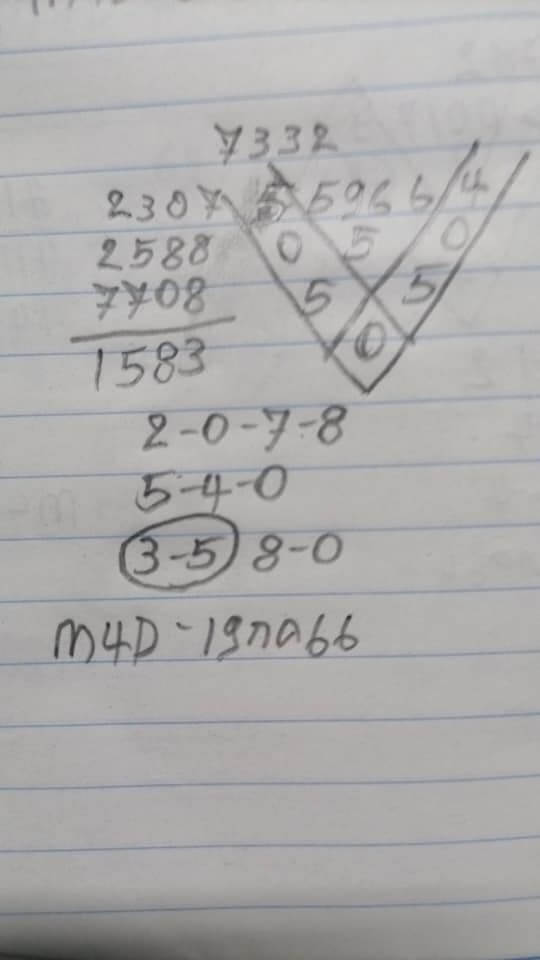 7332
2307 5 5966 4
2588 0 5 0
7708 5 5
1583 0
2-0-7-8
5-4-0
3-5 8-0